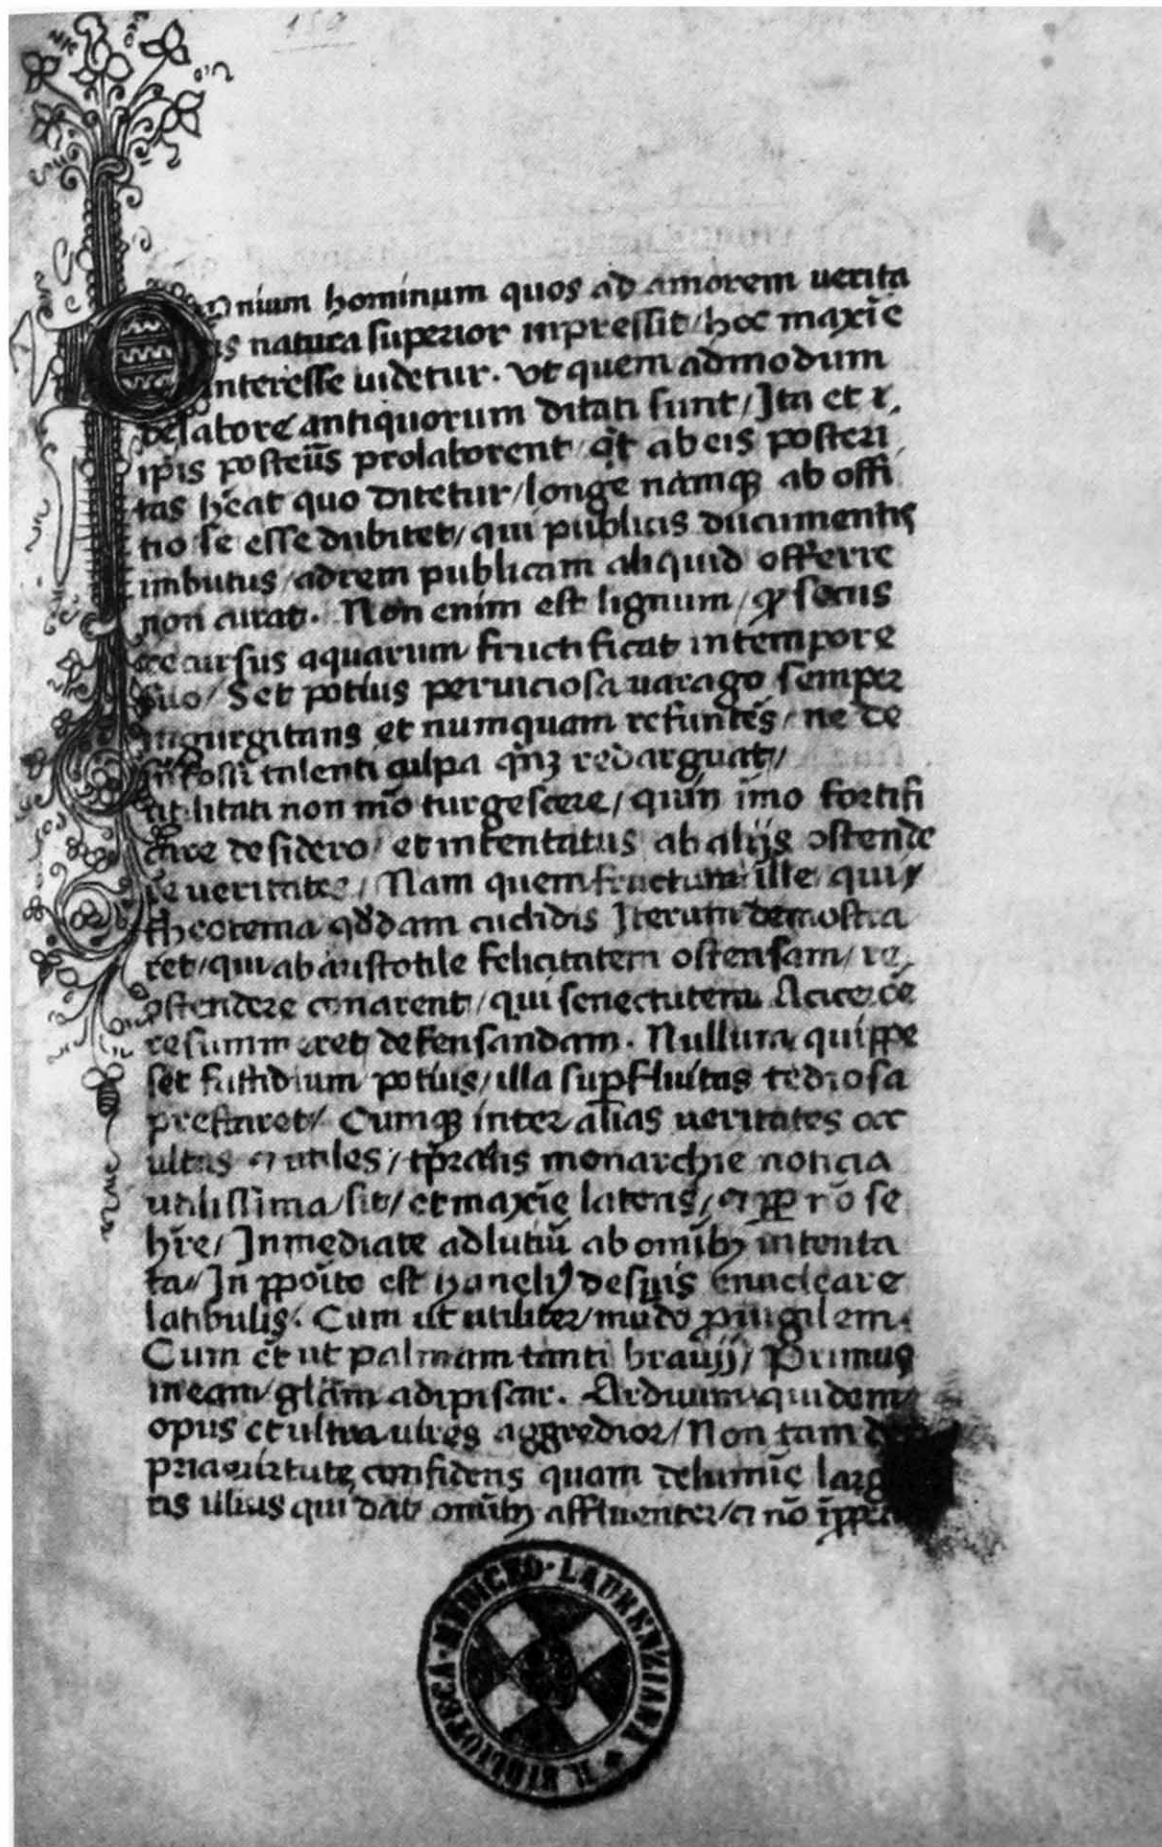 159
Omnium hominum quos ad amorem uerita
tis natura superior inpressit / hoc maxīe
interesse uidetur. Vt quem admodum
de labore antiquorum ditati sunt / Ita et
ip̄is posteris prolaborent q̄t ab eis posteri
tas h̄eat quo ditetur / longe namqꝫ ab offi
tio se esse dubitet / qui publicis ducumentis
imbutus / ad rem publicam aliquid offerre
non curat. Non enim est lignum / qđ secus
decursus aquarum fructificat in tempore
suo / Set potius perniciosa uarago semper
ingurgitans et numquam refundēs / ne de
infossi talenti culpa q̄nꝫ redarguat /
utilitati non mō turgescere / quin īmo fortifi
care desidero / et intentatas ab alijs ostende
re ueritates / Nam quem fructum ille qui
theorema qd̄dam euclidis Iterum demostra
ret / qui ab aristotile felicitatem ostensam / re
ostendere conarent / qui senectutem A cice
resummeret defensandam. Nullum quippe
set fastidium potius / illa suꝑfluitas tediosa
prestaret / Cumqꝫ inter alias ueritates occ
ultas et utiles / tp̄ralis monarchie noticia
utilissima sit / et maxīe latens / et ꝓꝑ nō se
h̄re / Inmediate ad lucrū ab om̄ibꝫ intenta
ta / In ꝓpoīto est hanc de suis enucleare
latibulis. Cum ut utiliter mūdo ꝑuigilem.
Cum et̄ ut palmam tanti brauij / Primus
meam / gl̄am adipiscar. Arduum quidem
opus et ultra uires aggredior / Non tam de
pria uirtute confidens quam de lumīe larg
tis illius qui dat om̄ibꝫ affluenter / et nō īpꝑ
R. BIBLIOTECA · MEDICEO · LAURENZIANA